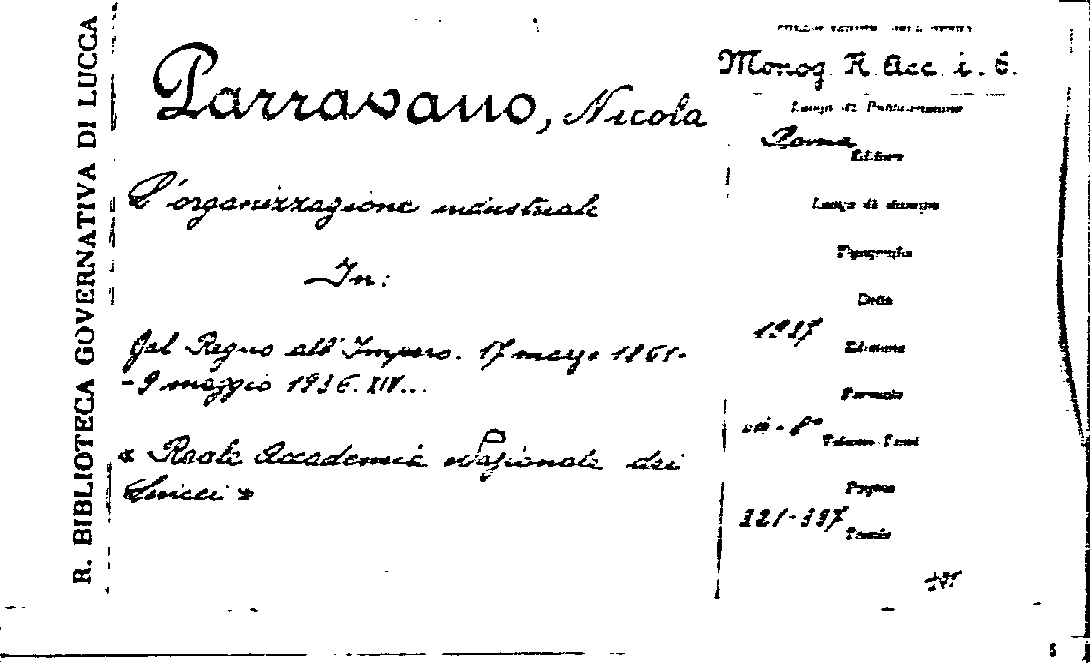 R. BIBLIOTECA GOVERNATIVA DI LUCCA
Parravano, Nicola
L'organizzazione industriale
In:
Dal Regno all'Impero. 17 marzo 1861-
-9 maggio 1936. XIV...
« Reale Accademia Nazionale dei
Lincei »
Monog. R. Acc. i. 6.
Luogo di Pubblicazione
Roma
Editore
Luogo di stampa
Tipografia
Data
1937
Edizione
Formato
in-8°
Volume Tomi
Pagine
Tavole